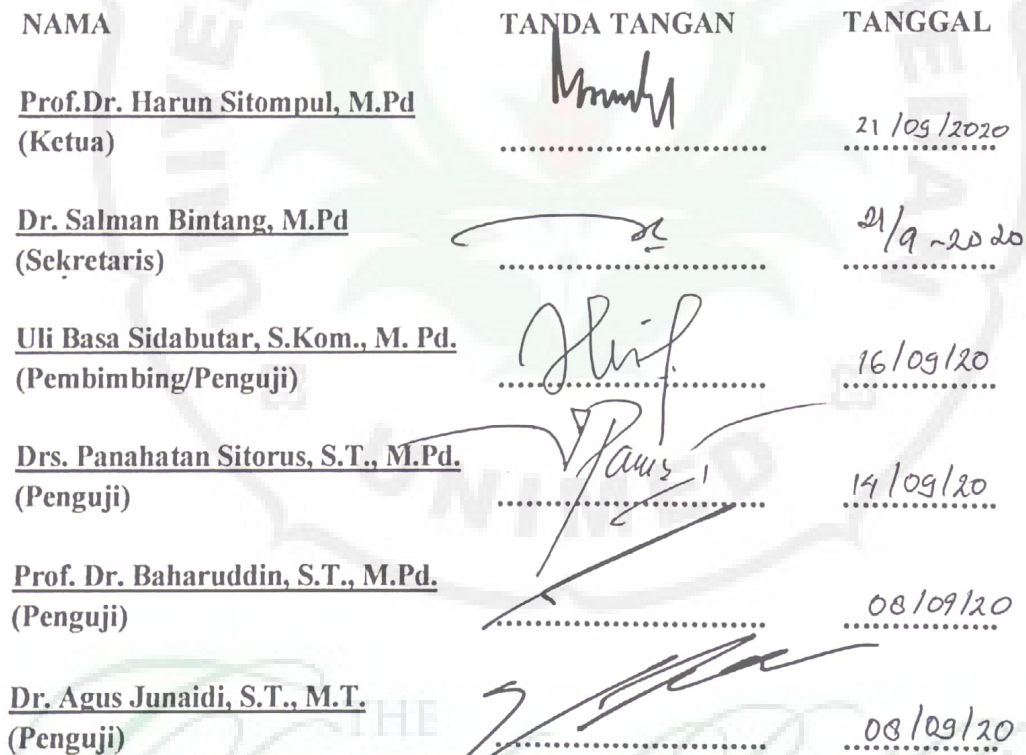 NAMA TANDA TANGAN TANGGAL
Prof.Dr. Harun Sitompul, M.Pd
(Ketua) 21/09/2020
Dr. Salman Bintang, M.Pd 21/9-2020
(Sekretaris)
Uli Basa Sidabutar, S.Kom., M. Pd.
(Pembimbing/Penguji) 16/09/20
Drs. Panahatan Sitorus, S.T., M.Pd.
(Penguji) 14/09/20
UNIMED
Prof. Dr. Baharuddin, S.T., M.Pd.
(Penguji) 08/09/20
Dr. Agus Junaidi, S.T., M.T.
THE
(Penguji) 08/09/20